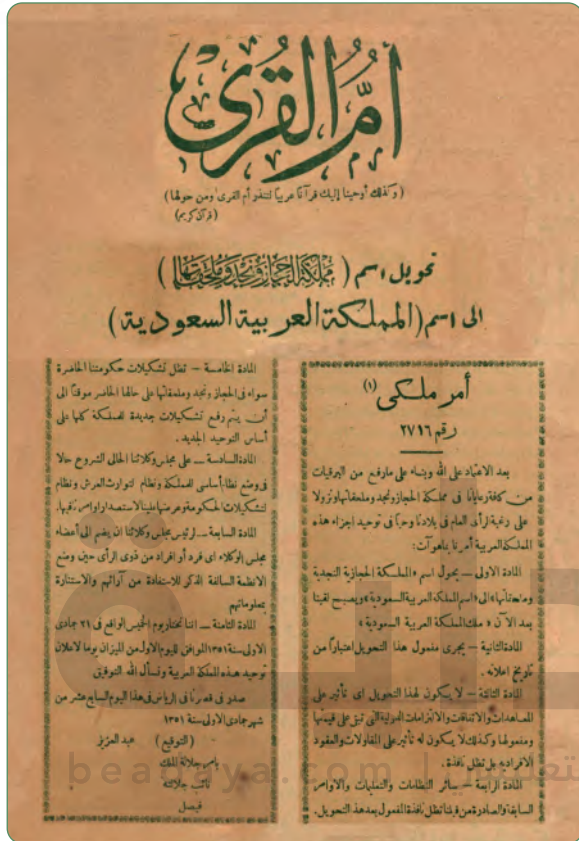 أم القرى
(وكذلك أوحينا إليك قرآنا عربيا لتنذر أم القرى ومن حولها)
(قرآن كريم)
تحويل اسم (مملكة الحجاز ونجد وملحقاتها)
الى اسم (المملكة العربية السعودية)
أمر ملكى (١)
رقم ٢٧١٦
بعد الاعتماد على الله وبناء على مارفع من البرقيات
من كافة رعايانا فى مملكة الحجاز ونجد وملحقاتها ونزولا
على رغبة الرأى العام فى بلادنا وحبا فى توحيد اجزاء هذه
المملكة العربية أمرنا بما هو آت :
المادة الاولى — يحول اسم «المملكة الحجازية النجدية
وملحقاتها» الى «اسم المملكة العربية السعودية» ويصبح لقبنا
بعد الآن «ملك المملكة العربية السعودية»
المادة الثانية — يجرى مفعول هذا التحويل اعتبارا من
تاريخ اعلانه .
المادة الثالثة — لا يكون لهذا التحويل اى تأثير على
المعاهدات والاتفاقات والالتزامات الدولية التى تبقى على قيمتها
ومفعولها وكذلك لا يكون له تأثير على المقاولات والعقود
الافرادية بل تظل نافذة .
المادة الرابعة — سائر النظامات والتعليمات والاوامر
السابقة والصادرة من قبلنا تظل نافذة المفعول بعد هذا التحويل .
المادة الخامسة — تظل تشكيلات حكومتنا الحاضرة
سواء فى الحجاز ونجد وملحقاتها على حالها الحاضر موقتا الى
أن يتم وضع تشكيلات جديدة للمملكة كلها على
أساس التوحيد الجديد .
المادة السادسة — على مجلس وكلائنا الحالى الشروع حالا
فى وضع نظام أساسى للمملكة ونظام لتوارث العرش ونظام
لتشكيلات الحكومة وعرضها علينا لاستصدار اوامرنا فيها .
المادة السابعة — لرئيس مجلس وكلائنا ان يضم الى أعضاء
مجلس الوكلاء اى فرد أو افراد من ذوى الرأى حين وضع
الانظمة السالفة الذكر للاستفادة من آرائهم والاستنارة
بمعلوماتهم
المادة الثامنة — اننا نختار يوم الخميس الواقع فى ٢١ جمادى
الاولى سنة ١٣٥١ الموافق لليوم الاول من الميزان يوما لاعلان
توحيد هذه المملكة العربية ونسأل الله التوفيق
صدر فى قصرنا فى الرياض فى هذا اليوم السابع عشر من
شهر جمادى الاولى سنة ١٣٥١
(التوقيع) عبد العزيز
بامر جلالة الملك
نائب جلالته
فيصل
beadaya.com